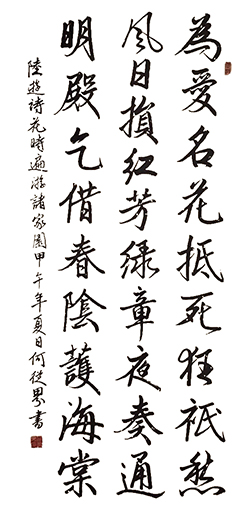 為愛名花抵死狂衹愁
風日損紅芳綠章夜奏通
明殿乞借春陰護海棠
陸遊詩花時遍遊諸家園甲午年夏日何從界書